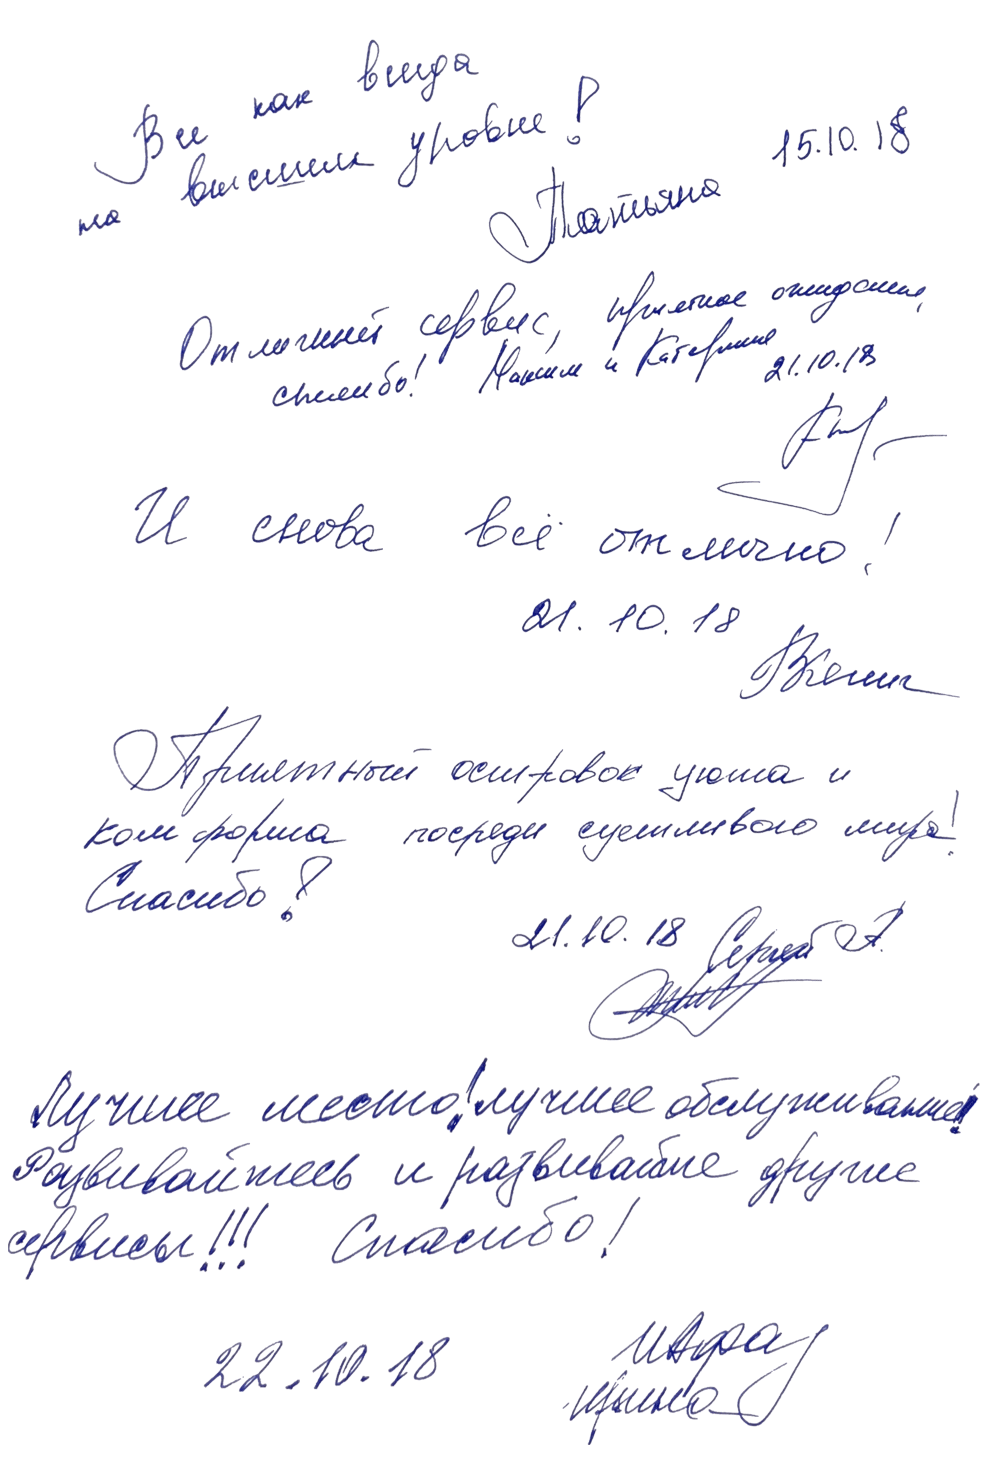 Все как всегда
на высшем уровне!
15.10.18
Татьяна
Отличный сервис, приятное ожидание,
спасибо! Максим и Катерина
21.10.18
И снова всё отлично!
21.10.18
Приятный островок уюта и
комфорта посреди суетливого мира!
Спасибо!
21.10.18 Сергей А.
Лучшее место! лучшее обслуживание!
Развивайтесь и развивайте другие
сервисы!!! Спасибо!
22.10.18
Ирина